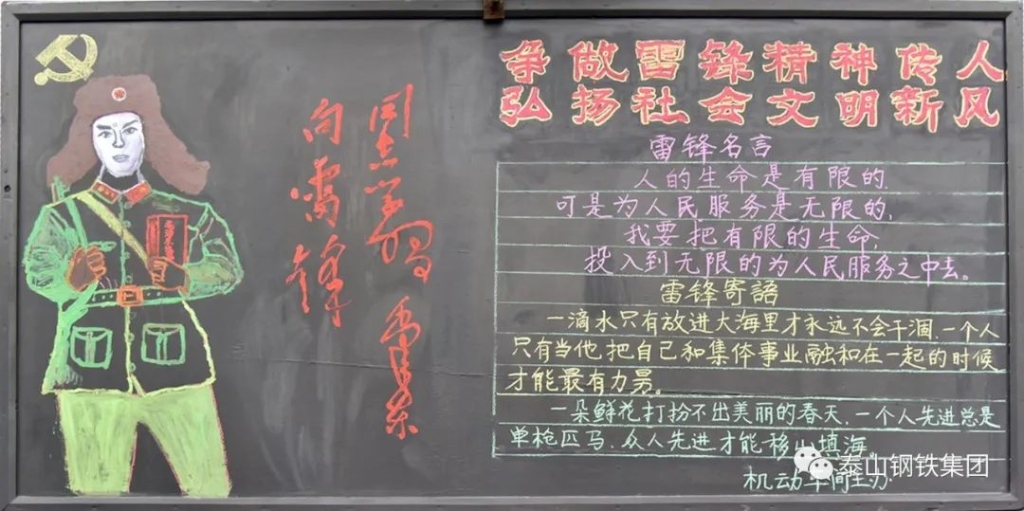 向雷锋
同志学习 毛泽东
争做雷锋精神传人
弘扬社会文明新风
雷锋名言
人的生命是有限的,
可是为人民服务是无限的,
我要把有限的生命,
投入到无限的为人民服务之中去。
雷锋寄語
一滴水只有放进大海里才永远不会干涸,一个人
只有当他把自己和集体事业融和在一起的时候
才能最有力量。
一朵鲜花打扮不出美丽的春天,一个人先进总是
单枪匹马,众人先进才能移山填海。
机动车间主办
泰山钢铁集团